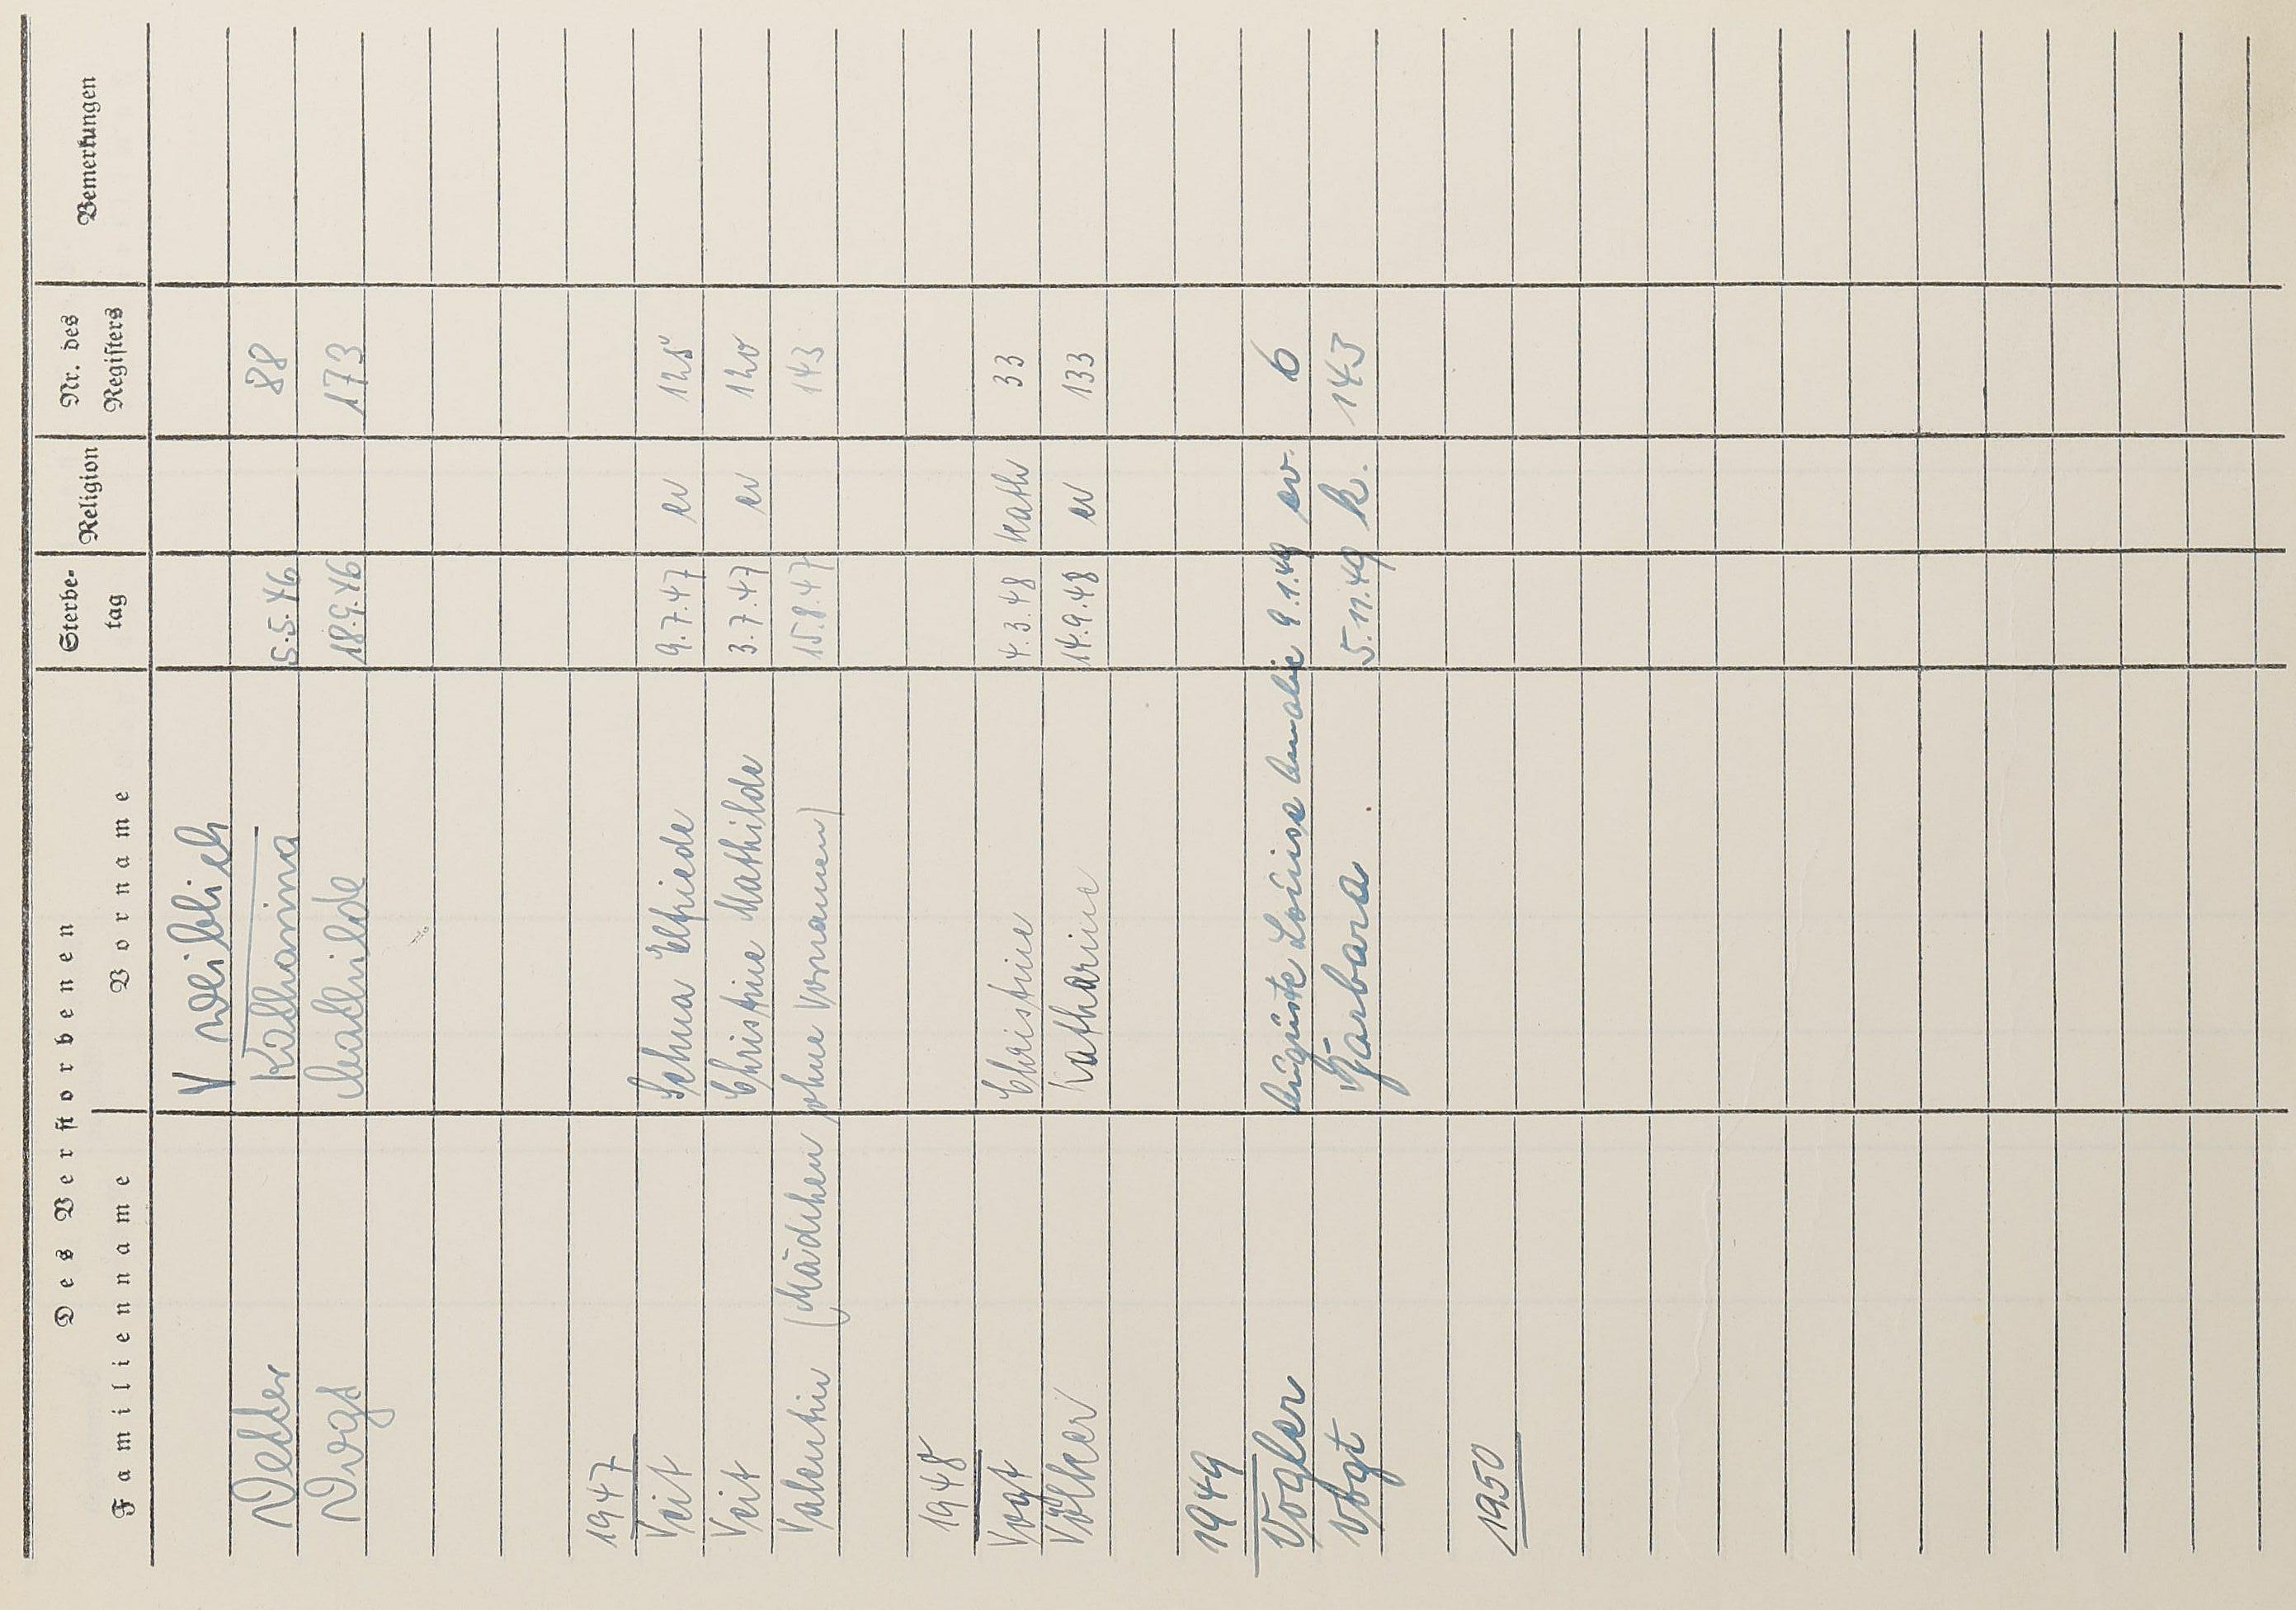 Des Verstorbenen Sterbe- Religion Nr. des Bemerkungen
Familienname Vorname tag Registers
V weiblich
Vetter Katharina 5.5.46 88
Vogt Mathilde 18.9.46 173
1947
Veit Selma Elfriede 9.7.47 ev 125
Veit Christine Mathilde 3.7.47 ev 120
Valentin (Mädchen ohne Vornamen) 15.8.47 143
1948
Vogt Christine 4.3.48 kath 33
Völker Katharine 14.9.48 ev 133
1949
Vogler Auguste Louise Amalie 9.1.49 ev. 6
Vogt Barbara 5.11.49 k. 143
1950